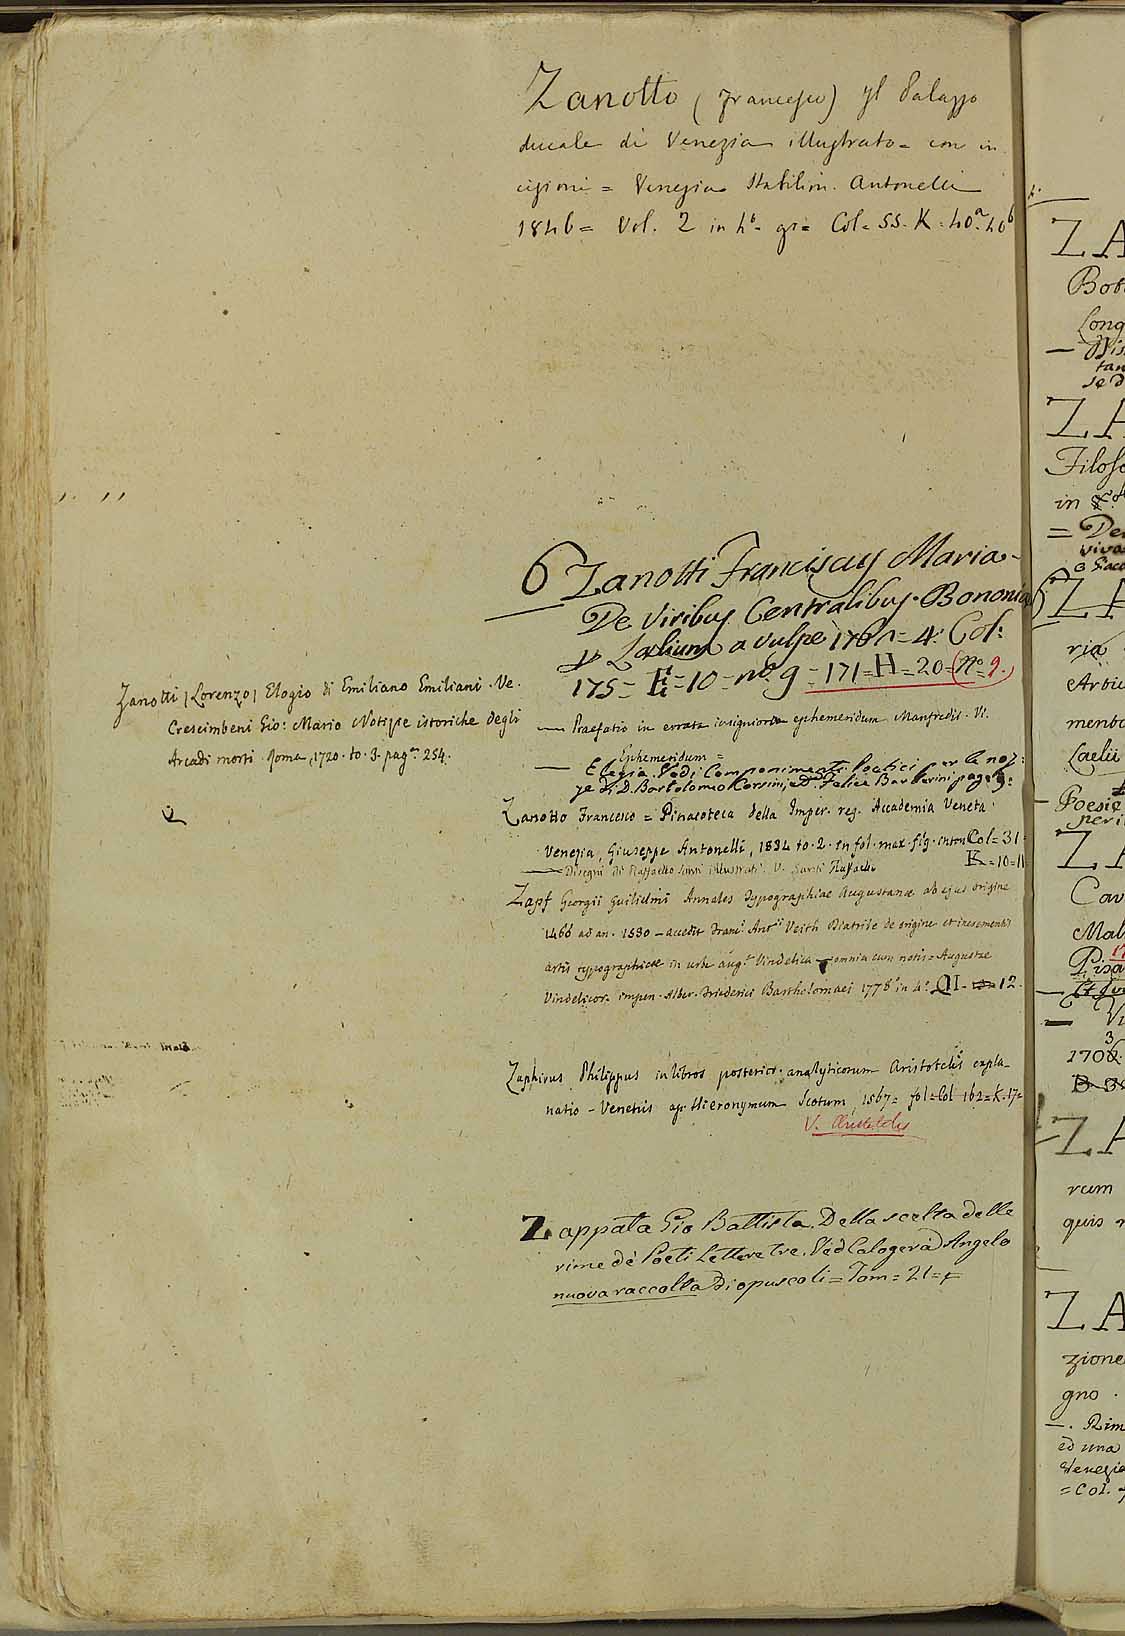 Zanotto (Francesco) Il Palazzo
ducale di Venezia illustrato = con in
cisioni = Venezia Stabilim. Antonelli
1846 = Vol. 2 in 4° gr = Col = SS. K = 40ª = 40b
6 Zanotti Franciscus Maria =
De Viribus Centralibus. Bononiæ
Lælium a Vulpe 1762 = 4° Col:
175 = = 10 = n° 9 = 171 = H = 20 = (N° = 9.)
— Praefatio in errata insigniora ephemeridum Manfredii. V.
Ephemeridum =
— Elegia. Vedi Componimenti Poetici per le noz:
ze di D. Bartolomeo Corsini, e D. Felice Barberini pag. 9:
Zanotti (Lorenzo) Elogio di Emiliano Emiliani. Ve.
Crescimbeni Gio: Mario Notizie istoriche degli
Arcadi morti Roma, 1720. to. 3. pag.ª 254.
Zanotto Francesco = Pinacoteca della Imper. reg. Accademia Veneta
Venezia, Giuseppe Antonelli, 1834 to. 2. in fol. max. fig. Col = 31 =
K = 10 = 11
— Disegni di Raffaello Santi illustrati. V. Santi Raffaello
Zapf Georgii Guilielmi Annales Typographiae Augustanae ab ejus origine
1466 ad an. 1530 — accedit Franc. Ant.ii Veith Diatribe de origine et incrementis
artis typographicae in urbe aug.ª Vindelica — omnia cum notis = Augustae
Vindelicor. impen. Alber. Friderici Bartholomaei 1778 in 4.° QI = 12.
Zaphirus Philippus in libros posterior. analyticorum Aristotelis expla-
natio — Venetiis ap. Hieronymum Scotum 1567 = fol = Col 162 = K. 17 =
V. Aristotelis
Zappata Gio Battista. Della scelta delle
rime de' Poeti Lettere tre. Ved Calogerà Angelo
nuova raccolta di opuscoli = Tom = 21 =
ZA
Long
ZA
Filoso
in 8.°
= De
viva
ria
Arbit
Laelii
— Poesie
ZA
Cav
Mal
Pisa
1706
ZA
rum
quis
ZA
zione
gno.
—. Rim
ed una
Venezia
= Col.